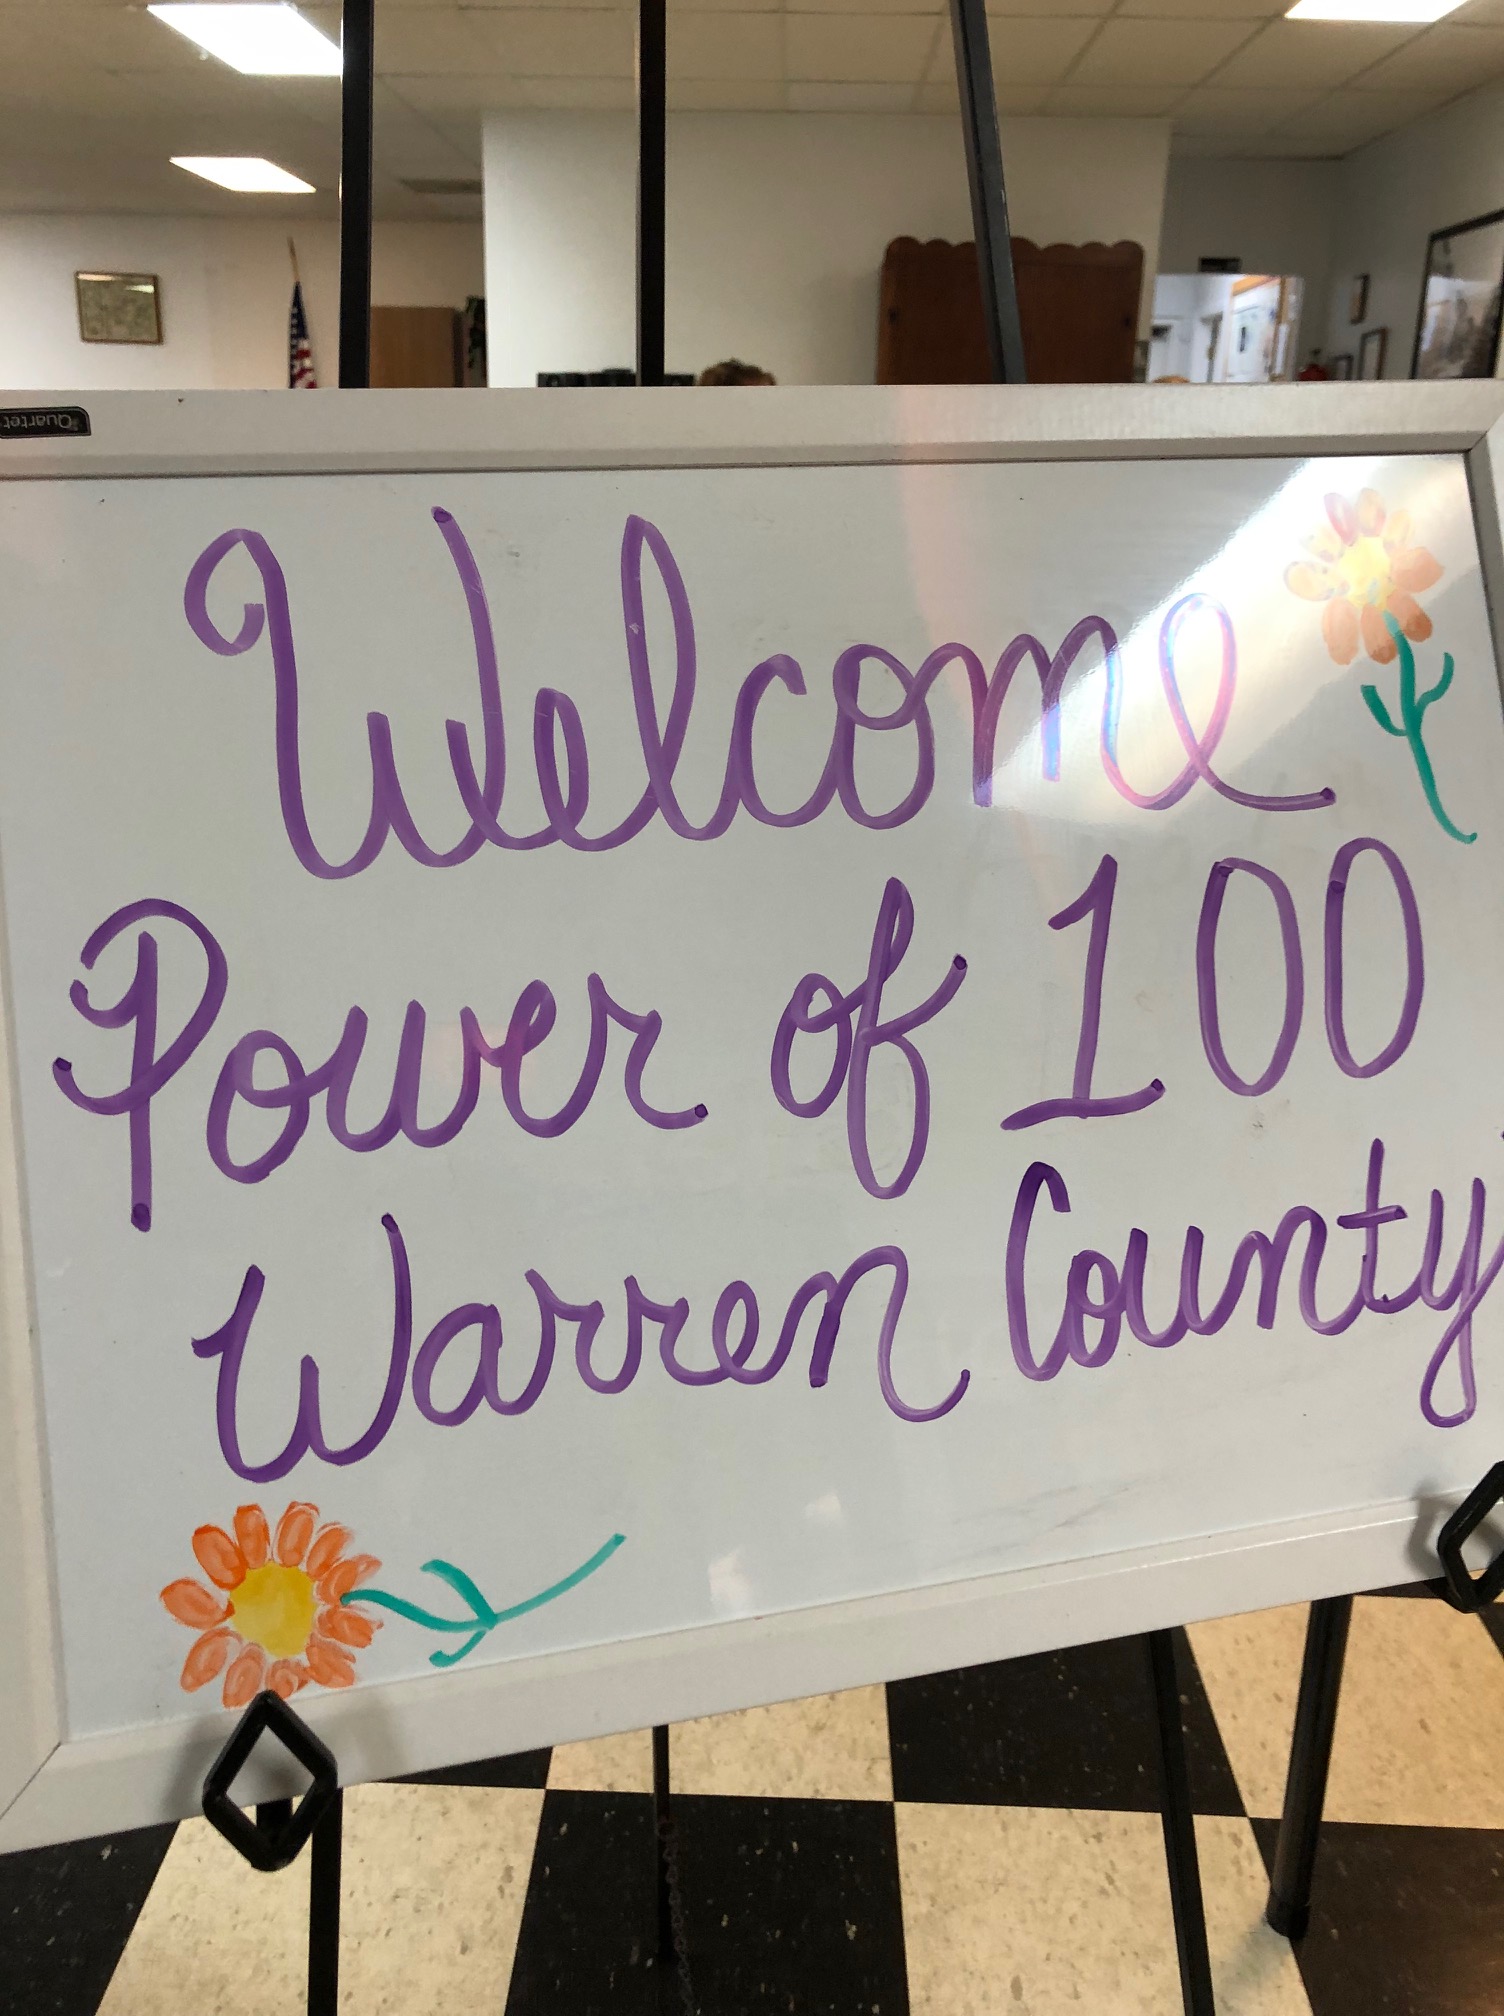 Quartet
Welcome
Power of 100
Warren County